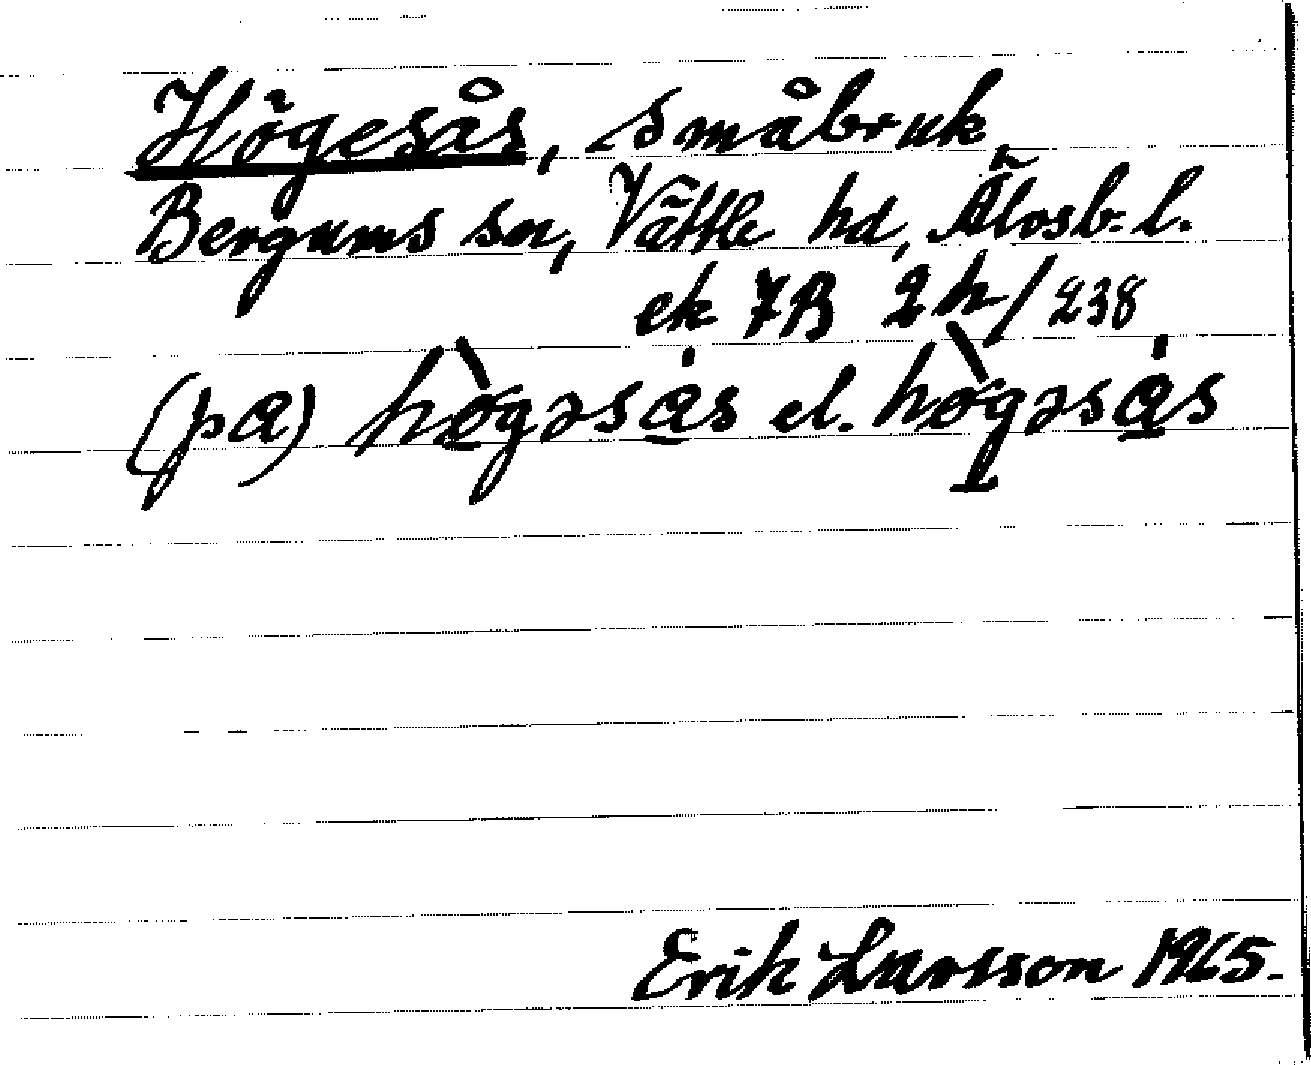 Högesås, småbruk,
Bergums sn, Vättle hd, Älvsb. l.
ek 7B 2h/238
(pα) hò̱gəsα̱̇s el. hò̱gəsα̱̇s
Erik Larsson 1965.